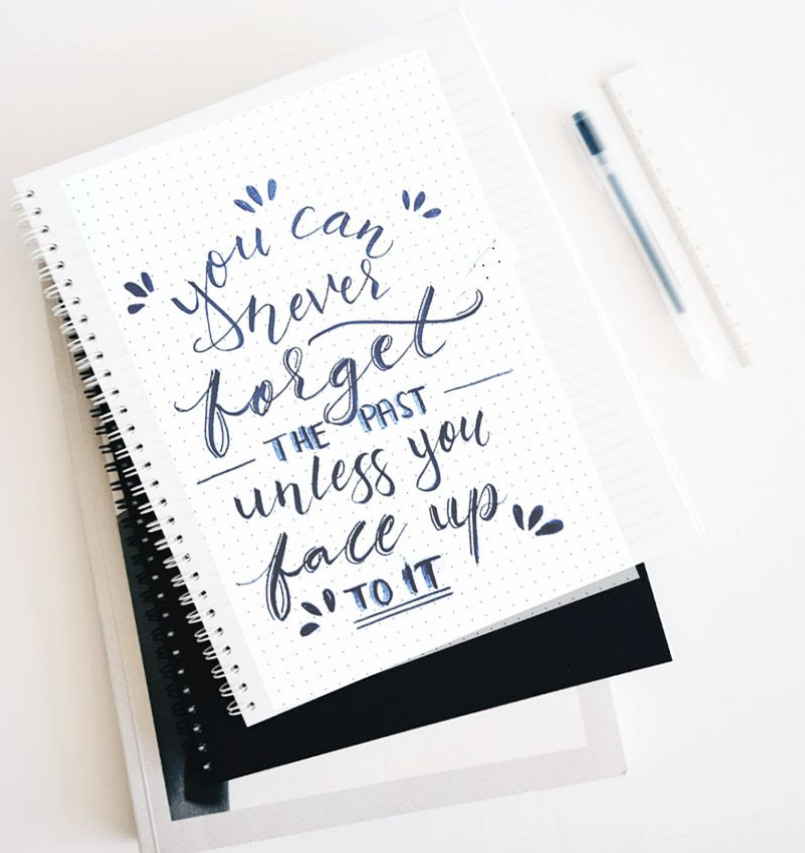 you can
never
forget
THE PAST
unless you
face up
TO IT